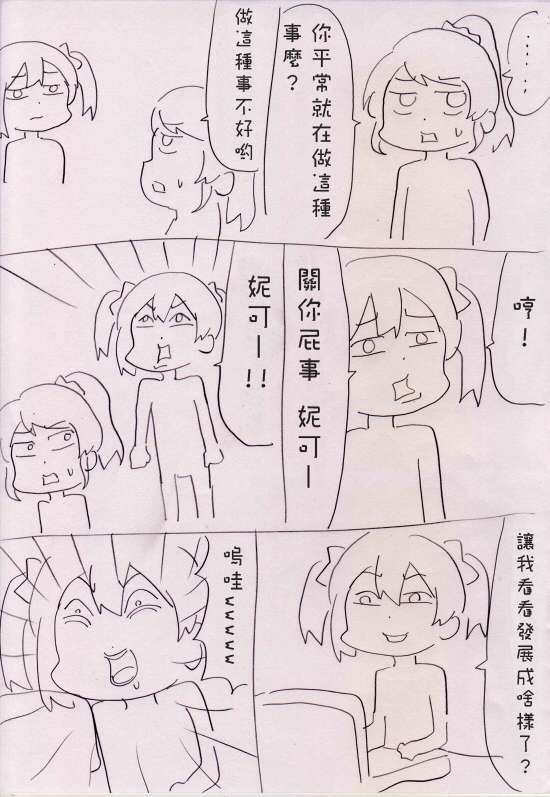 ……;
你平常就在做這種
事麼？
做這種事不好喲
哼！
關你屁事 妮可ー
妮可ー!!
讓我看看發展成啥樣了？
嗚哇